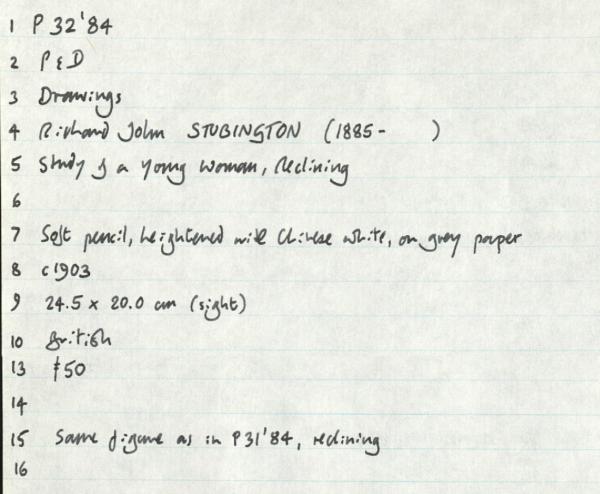 1 P 32'84
2 P & D
3 Drawings
4 Richard John STUBINGTON (1885- )
5 Study of a young woman, reclining
6
7 Soft pencil, heightened with Chinese white, on grey paper
8 c1903
9 24.5 x 20.0 cm (sight)
10 British
13 £50
14
15 Same figure as in P31'84, reclining
16